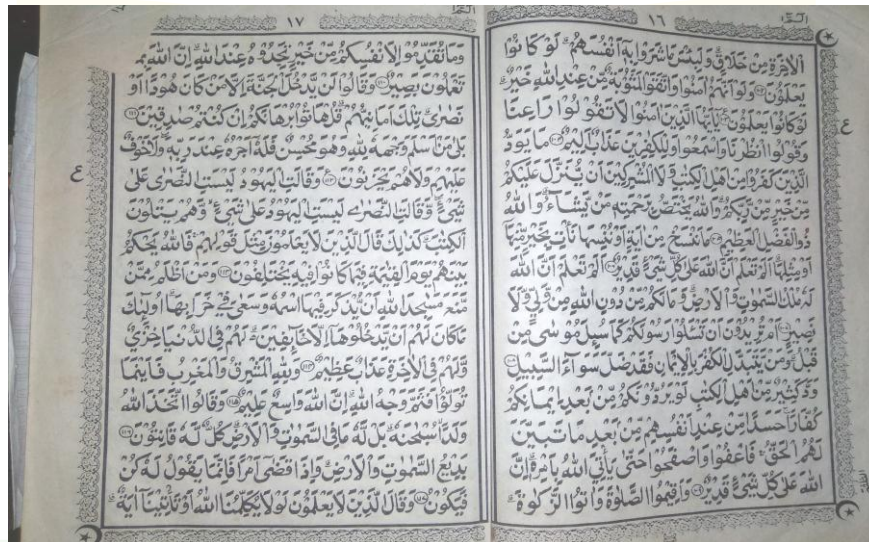 ١٦
الْاٰخِرَةِ مِنْ خَلَاقٍ وَلَبِئْسَ مَا شَرَوْا بِهٖ اَنْفُسَهُمْ لَوْ كَانُوْا
يَعْلَمُوْنَ ۝ وَلَوْ اَنَّهُمْ اٰمَنُوْا وَاتَّقَوْا لَمَثُوْبَةٌ مِّنْ عِنْدِ اللّٰهِ خَيْرٌ
لَوْ كَانُوْا يَعْلَمُوْنَ ۝ يٰاَيُّهَا الَّذِيْنَ اٰمَنُوْا لَا تَقُوْلُوْا رَاعِنَا
وَقُوْلُوا انْظُرْنَا وَاسْمَعُوْا وَلِلْكٰفِرِيْنَ عَذَابٌ اَلِيْمٌ ۝ مَا يَوَدُّ
الَّذِيْنَ كَفَرُوْا مِنْ اَهْلِ الْكِتٰبِ وَلَا الْمُشْرِكِيْنَ اَنْ يُّنَزَّلَ عَلَيْكُمْ
مِّنْ خَيْرٍ مِّنْ رَّبِّكُمْ وَاللّٰهُ يَخْتَصُّ بِرَحْمَتِهٖ مَنْ يَّشَآءُ وَاللّٰهُ
ذُو الْفَضْلِ الْعَظِيْمِ ۝ مَا نَنْسَخْ مِنْ اٰيَةٍ اَوْ نُنْسِهَا نَاْتِ بِخَيْرٍ مِّنْهَا
اَوْ مِثْلِهَا اَلَمْ تَعْلَمْ اَنَّ اللّٰهَ عَلٰى كُلِّ شَيْءٍ قَدِيْرٌ ۝ اَلَمْ تَعْلَمْ اَنَّ اللّٰهَ
لَهٗ مُلْكُ السَّمٰوٰتِ وَالْاَرْضِ وَمَا لَكُمْ مِّنْ دُوْنِ اللّٰهِ مِنْ وَّلِيٍّ وَّلَا
نَصِيْرٍ ۝ اَمْ تُرِيْدُوْنَ اَنْ تَسْئَلُوْا رَسُوْلَكُمْ كَمَا سُئِلَ مُوْسٰى مِنْ
قَبْلُ وَمَنْ يَّتَبَدَّلِ الْكُفْرَ بِالْاِيْمَانِ فَقَدْ ضَلَّ سَوَآءَ السَّبِيْلِ ۝
وَدَّ كَثِيْرٌ مِّنْ اَهْلِ الْكِتٰبِ لَوْ يَرُدُّوْنَكُمْ مِّنْ بَعْدِ اِيْمَانِكُمْ
كُفَّارًا حَسَدًا مِّنْ عِنْدِ اَنْفُسِهِمْ مِّنْ بَعْدِ مَا تَبَيَّنَ
لَهُمُ الْحَقُّ فَاعْفُوْا وَاصْفَحُوْا حَتّٰى يَاْتِيَ اللّٰهُ بِاَمْرِهٖ اِنَّ
اللّٰهَ عَلٰى كُلِّ شَيْءٍ قَدِيْرٌ ۝ وَاَقِيْمُوا الصَّلٰوةَ وَاٰتُوا الزَّكٰوةَ
ع
١٧
وَمَا تُقَدِّمُوْا لِاَنْفُسِكُمْ مِّنْ خَيْرٍ تَجِدُوْهُ عِنْدَ اللّٰهِ اِنَّ اللّٰهَ بِمَا
تَعْمَلُوْنَ بَصِيْرٌ ۝ وَقَالُوْا لَنْ يَّدْخُلَ الْجَنَّةَ اِلَّا مَنْ كَانَ هُوْدًا اَوْ
نَصٰرٰى تِلْكَ اَمَانِيُّهُمْ قُلْ هَاتُوْا بُرْهَانَكُمْ اِنْ كُنْتُمْ صٰدِقِيْنَ ۝
بَلٰى مَنْ اَسْلَمَ وَجْهَهٗ لِلّٰهِ وَهُوَ مُحْسِنٌ فَلَهٗ اَجْرُهٗ عِنْدَ رَبِّهٖ وَلَا خَوْفٌ
عَلَيْهِمْ وَلَا هُمْ يَحْزَنُوْنَ ۝ وَقَالَتِ الْيَهُوْدُ لَيْسَتِ النَّصٰرٰى عَلٰى
شَيْءٍ وَّقَالَتِ النَّصٰرٰى لَيْسَتِ الْيَهُوْدُ عَلٰى شَيْءٍ وَّهُمْ يَتْلُوْنَ
الْكِتٰبَ كَذٰلِكَ قَالَ الَّذِيْنَ لَا يَعْلَمُوْنَ مِثْلَ قَوْلِهِمْ فَاللّٰهُ يَحْكُمُ
بَيْنَهُمْ يَوْمَ الْقِيٰمَةِ فِيْمَا كَانُوْا فِيْهِ يَخْتَلِفُوْنَ ۝ وَمَنْ اَظْلَمُ مِمَّنْ
مَّنَعَ مَسٰجِدَ اللّٰهِ اَنْ يُّذْكَرَ فِيْهَا اسْمُهٗ وَسَعٰى فِيْ خَرَابِهَا اُولٰٓئِكَ
مَا كَانَ لَهُمْ اَنْ يَّدْخُلُوْهَا اِلَّا خَآئِفِيْنَ لَهُمْ فِي الدُّنْيَا خِزْيٌ
وَّلَهُمْ فِي الْاٰخِرَةِ عَذَابٌ عَظِيْمٌ ۝ وَلِلّٰهِ الْمَشْرِقُ وَالْمَغْرِبُ فَاَيْنَمَا
تُوَلُّوْا فَثَمَّ وَجْهُ اللّٰهِ اِنَّ اللّٰهَ وَاسِعٌ عَلِيْمٌ ۝ وَقَالُوا اتَّخَذَ اللّٰهُ
وَلَدًا سُبْحٰنَهٗ بَلْ لَّهٗ مَا فِي السَّمٰوٰتِ وَالْاَرْضِ كُلٌّ لَّهٗ قَانِتُوْنَ ۝
بَدِيْعُ السَّمٰوٰتِ وَالْاَرْضِ وَاِذَا قَضٰى اَمْرًا فَاِنَّمَا يَقُوْلُ لَهٗ كُنْ
فَيَكُوْنُ ۝ وَقَالَ الَّذِيْنَ لَا يَعْلَمُوْنَ لَوْلَا يُكَلِّمُنَا اللّٰهُ اَوْ تَاْتِيْنَا اٰيَةٌ
ع